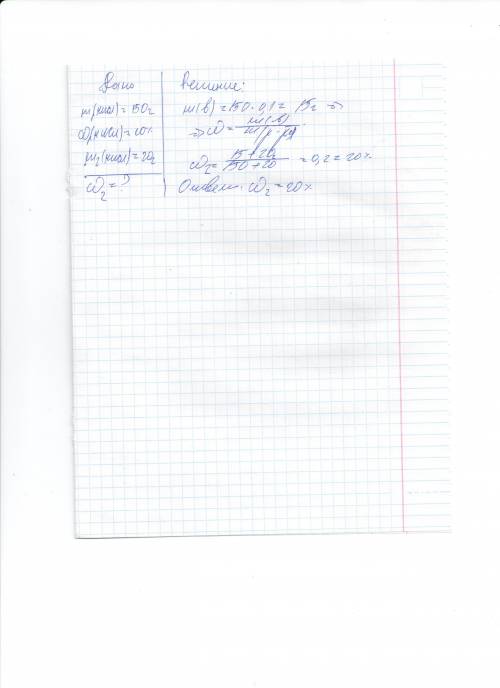 Дано
m(кисл) = 150г
ω(кисл) = 10%
m₂(кисл) = 20г
ω₂ = ?
Решение:
m(в) = 150 · 0,1 = 15г ⇒
⇒ ω = m(в) / m(р-ра)
ω₂ = 15 + 20 / 150 + 20 = 0,2 = 20%
Ответ: ω₂ = 20%